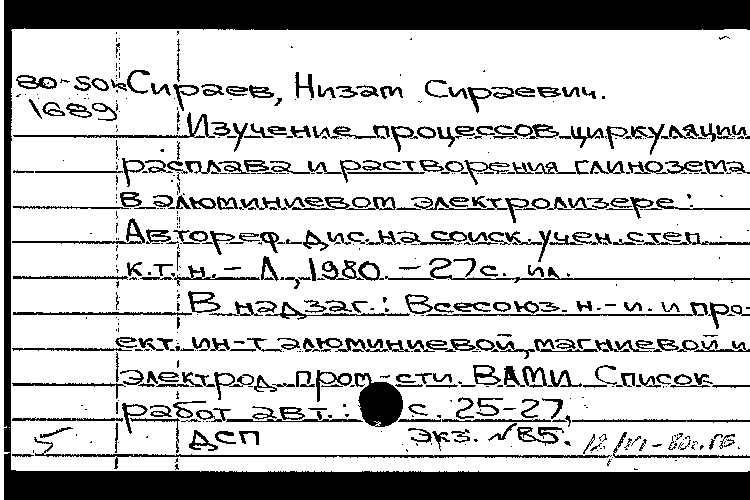 80-50к Сираев, Низам Сираевич.
1689
Изучение процессов циркуляции
расплава и растворения глинозема
в алюминиевом электролизере:
Автореф. дис. на соиск. учен. степ.
к.т.н. – Л., 1980. – 27 с., ил.
В надзаг.: Всесоюз. н.-и. и про-
ект. ин-т алюминиевой, магниевой и
электрод. пром-сти. ВАМИ. Список
работ авт.: с. 25-27,
5 ДСП экз. №85. 12/VI-80г.